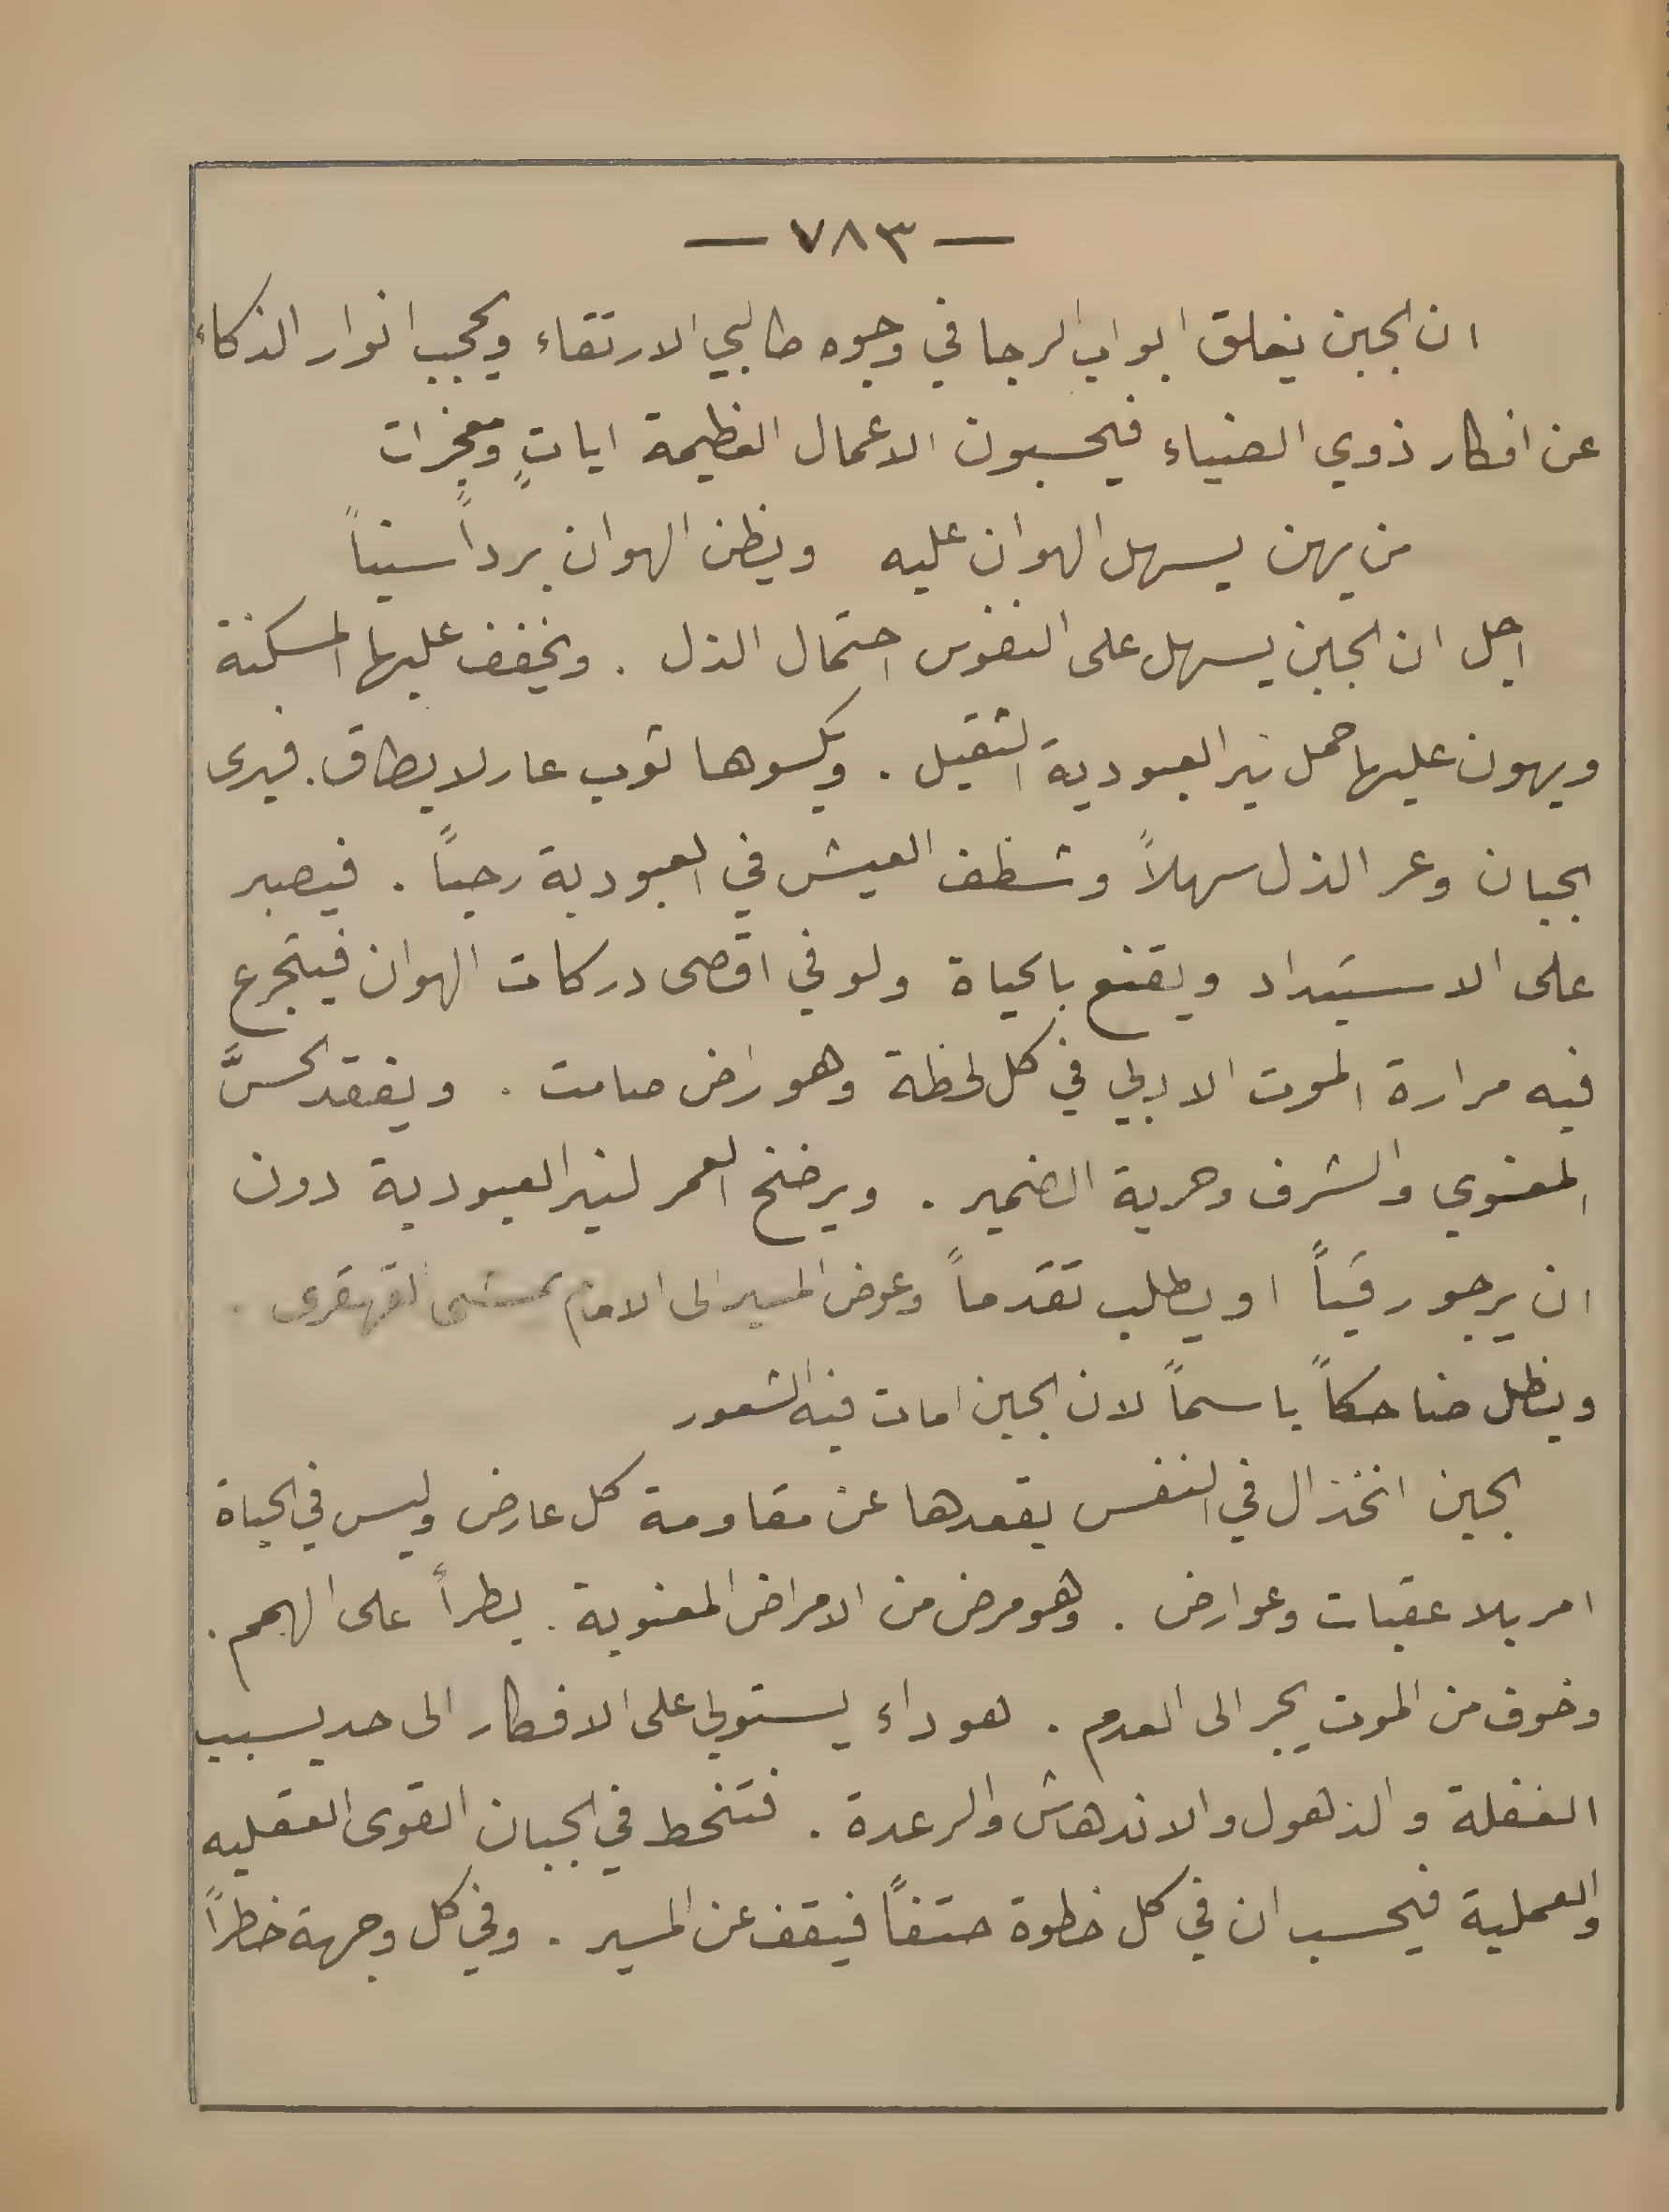 — ٧٨٣ —
ان الجبن يغلق ابواب الرجا في وجوه طالبي الارتقاء ويحجب انوار الذكاء
عن افكار ذوي الضياء فيحسبون الاعمال العظيمة اياتٍ ومعجزات
من يهن يسهل الهوان عليه ويظن الهوان برداً سنياً
اجل ان الجبن يسهل على النفوس احتمال الذل . ويخفف عليها المسكنة
ويهون عليها حمل نير العبودية الثقيل . ويكسوها ثوب عار لا يطاق . فيرى
الجبان وعر الذل سهلاً وشظف العيش في العبودية رحباً . فيصبر
على الاستبداد ويقنع بالحياة ولو في اقصى دركات الهوان فيتجرع
فيه مرارة الموت الادبي في كل لحظة وهو راض صامت . ويفقد الحسَّ
المعنوي والشرف وحرية الضمير . ويرضخ العمر لنير العبودية دون
ان يرجو رقياً او يطلب تقدماً وعوض المسير الى الامام يمشي القهقرى .
ويظل ضاحكاً باسماً لان الجبن امات فيه الشعور
الجبن انخذال في النفس يقعدها عن مقاومة كل عارض وليس في الحياة
امر بلا عقبات وعوارض . وهو مرض من الامراض المعنوية . يطرأ على الهمم .
وخوف من الموت يجر الى العدم . هو داء يستولي على الافكار الى حد يسبب
الغفلة والذهول والاندهاش والرعدة . فتنحط في الجبان القوى العقليه
والعملية فيحسب ان في كل خطوة حتفاً فيقف عن المسير . وفي كل وجهة خطراً